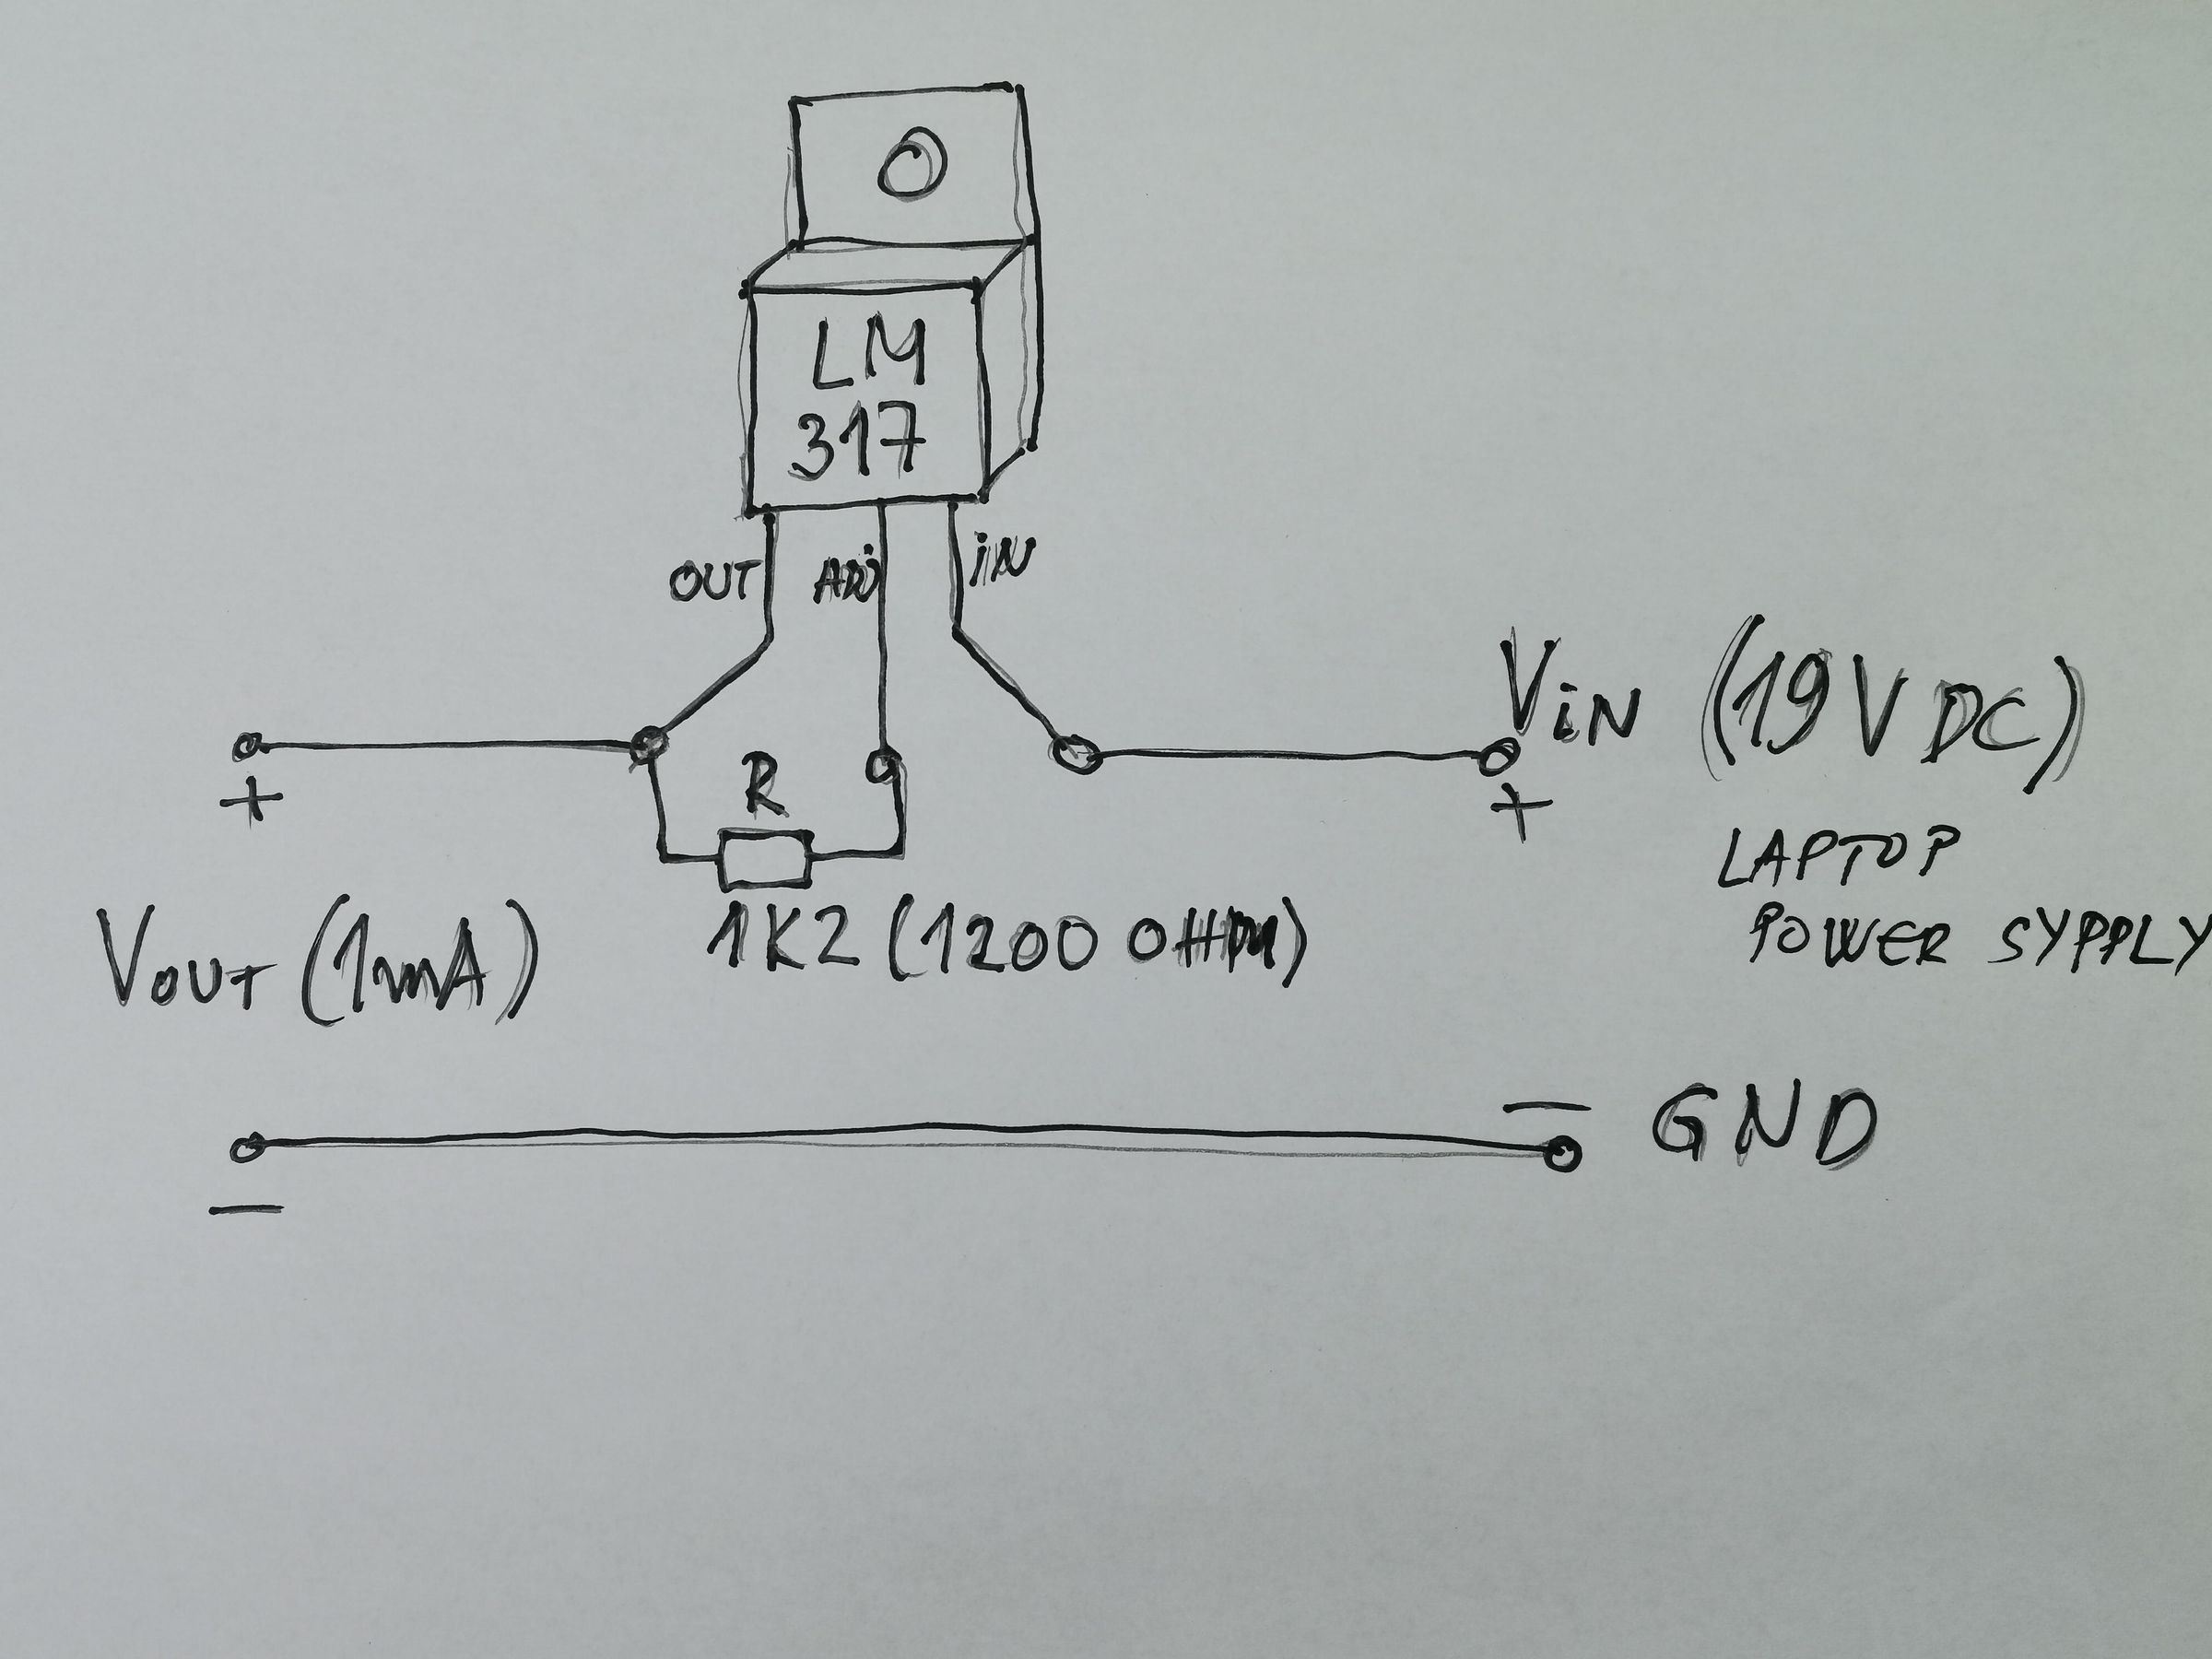 LM
317
OUT ADJ iN
R
ViN (19V DC)
+
+
LAPTOP
POWER SYPPLY
VOUT (1mA)
1K2 (1200 OHM)
— GND
—